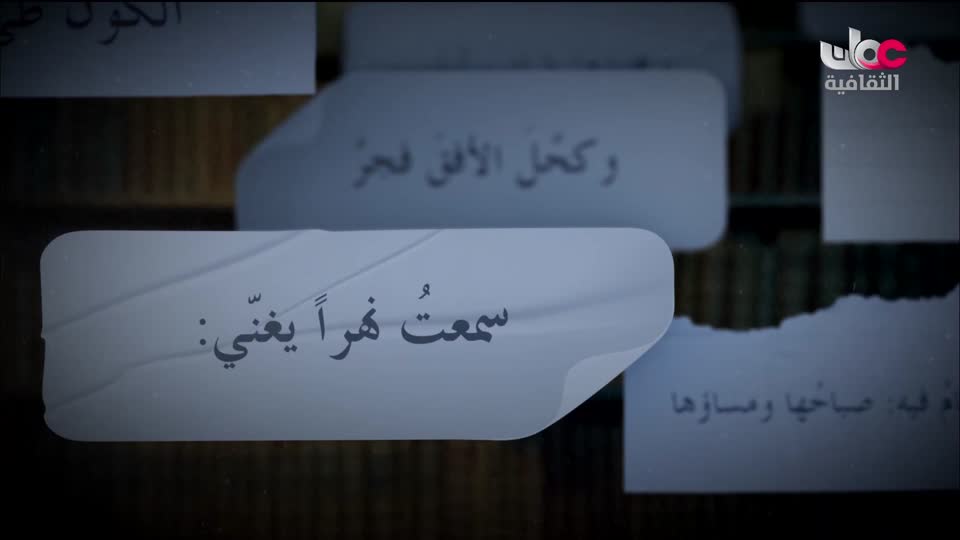 عمان
الثقافية
الكون
وكحّل الأفقَ فجرٌ
سمعتُ نهراً يغنّي:
فيه: صباحُها ومساؤها